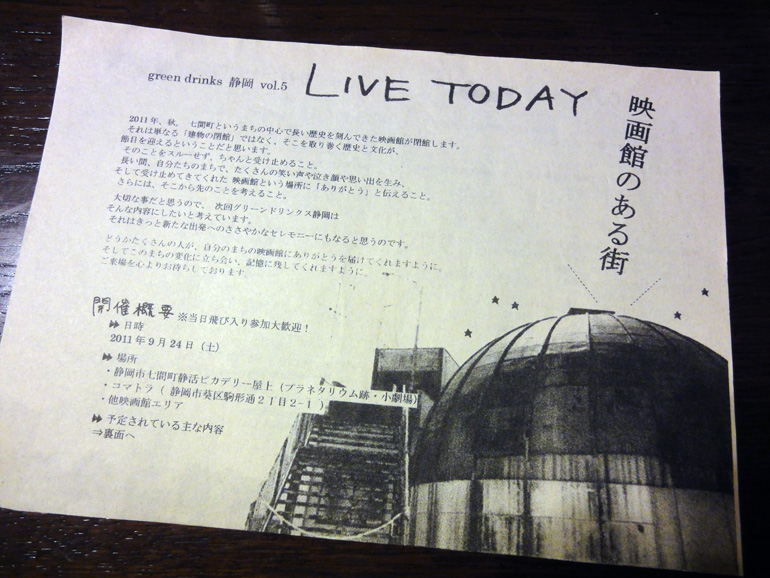 green drinks 静岡 vol.5 LIVE TODAY
映画館のある街
2011年、秋。 七間町というまちの中心で長い歴史を刻んできた映画館が閉館します。
それは単なる「建物の閉館」ではなく、そこを取り巻く歴史と文化が、
節目を迎えるということだと思います。
そのことをスルーせず、ちゃんと受け止めること。
長い間、自分たちのまちで、たくさんの笑い声や泣き顔や思い出を生み、
そして受け止めてきてくれた 映画館という場所に「ありがとう」と伝えること。
さらには、そこから先のことを考えること。
大切な事だと思うので、 次回グリーンドリンクス静岡は
そんな内容にしたいと考えています。
それはきっと新たな出発へのささやかなセレモニーにもなると思うのです。
どうかたくさんの人が、自分のまちの映画館にありがとうを届けてくれますように。
そしてこのまちの変化に立ち会い、記憶に残してくれますように。
ご来場を心よりお待ちしております
開催概要 ※当日飛び入り参加大歓迎！
日時
2011年9月24日（土）
場所
・静岡市七間町静活ピカデリー屋上（プラネタリウム跡・小劇場）
・コマトラ（ 静岡市葵区駒形通2丁目2−1 ）
・他映画館エリア
予定されている主な内容
⇒裏面へ